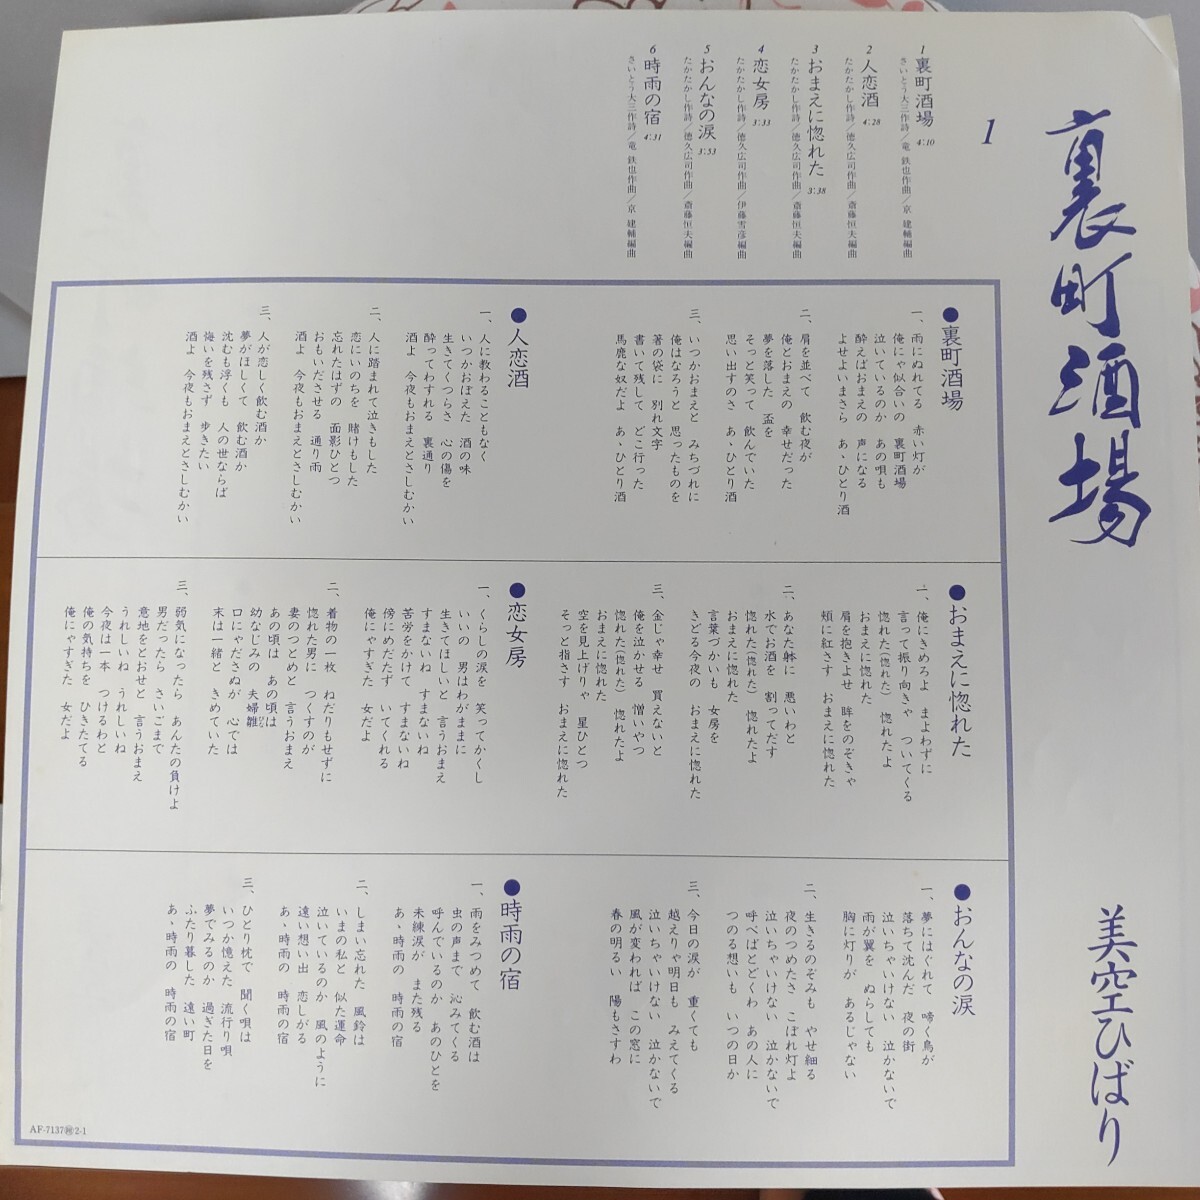 裏町酒場
美空ひばり
1
1 裏町酒場 4:10
さいとう大三作詩/竜 鉄也作曲/京 建輔編曲
2 人恋酒 4:28
たかたかし作詩/徳久広司作曲/斎藤恒夫編曲
3 おまえに惚れた 3:38
たかたかし作詩/徳久広司作曲/斎藤恒夫編曲
4 恋女房 3:33
たかたかし作詩/徳久広司作曲/伊藤雪彦編曲
5 おんなの涙 3:53
たかたかし作詩/徳久広司作曲/斎藤恒夫編曲
6 時雨の宿 4:31
さいとう大三作詩/竜 鉄也作曲/京 建輔編曲
●裏町酒場
一、雨にぬれてる 赤い灯が
俺にゃ似合いの 裏町酒場
泣いているのか あの唄も
酔えばおまえの 声になる
よせよいまさら あゝひとり酒
二、肩を並べて 飲む夜が
俺とおまえの 幸せだった
夢を落した 盃を
そっと笑って 飲んでいた
思い出すのさ あゝひとり酒
三、いつかおまえと みちづれに
俺はなろうと 思ったものを
箸の袋に 別れ文字
書いて残して どこ行った
馬鹿な奴だよ あゝひとり酒
●人恋酒
一、人に教わることもなく
いつかおぼえた 酒の味
生きてくつらさ 心の傷を
酔ってわすれる 裏通り
酒よ 今夜もおまえとさしむかい
二、人に踏まれて泣きもした
恋にいのちを 賭けもした
忘れたはずの 面影ひとつ
おもいださせる 通り雨
酒よ 今夜もおまえとさしむかい
三、人が恋しく飲む酒か
夢がほしくて 飲む酒か
沈むも浮くも 人の世ならば
悔いを残さず 歩きたい
酒よ 今夜もおまえとさしむかい
●おまえに惚れた
一、俺にきめろよ まよわずに
言って振り向きゃ ついてくる
惚れた(惚れた) 惚れたよ
おまえに惚れた
肩を抱きよせ 眸をのぞきゃ
頬に紅さす おまえに惚れた
二、あなた躰に 悪いわと
水でお酒を 割ってだす
惚れた(惚れた) 惚れたよ
おまえに惚れた
言葉づかいも 女房を
きどる今夜の おまえに惚れた
三、金じゃ幸せ 買えないと
俺を泣かせる 憎いやつ
惚れた(惚れた) 惚れたよ
おまえに惚れた
空を見上げりゃ 星ひとつ
そっと指さす おまえに惚れた
●恋女房
一、くらしの涙を 笑ってかくし
いいの 男はわがままに
生きてほしいと 言うおまえ
すまないね すまないね
苦労をかけて すまないね
傍にめだたず いてくれる
俺にゃすぎた 女だよ
二、着物の一枚 ねだりもせずに
惚れた男に つくすのが
妻のつとめと 言うおまえ
あの頃は あの頃は
幼なじみの 夫婦雛
口にゃださぬが 心では
末は一緒と きめていた
三、弱気になったら あんたの負けよ
男だったら さいごまで
意地をとおせと 言うおまえ
うれしいね うれしいね
今夜は一本 つけるわと
俺の気持ちを ひきたてる
俺にゃすぎた 女だよ
●おんなの涙
一、夢にはぐれて 啼く鳥が
落ちて沈んだ 夜の街
泣いちゃいけない 泣かないで
雨が翼を ぬらしても
胸に灯りが あるじゃない
二、生きるのぞみも やせ細る
夜のつめたさ こぼれ灯よ
泣いちゃいけない 泣かないで
呼べばとどくわ あの人に
つのる想いも いつの日か
三、今日の涙が 重くても
越えりゃ明日も みえてくる
泣いちゃいけない 泣かないで
風が変われば この窓に
春の明るい 陽もさすわ
●時雨の宿
一、雨をみつめて 飲む酒は
虫の声まで 沁みてくる
呼んでいるのか あのひとを
未練涙が また残る
あゝ時雨の 時雨の宿
二、しまい忘れた 風鈴は
いまの私と 似た運命
泣いているのか 風のように
遠い想い出 恋しがる
あゝ時雨の 時雨の宿
三、ひとり枕で 聞く唄は
いつか憶えた 流行り唄
夢でみるのか 過ぎた日を
ふたり暮した 遠い町
あゝ時雨の 時雨の宿
AF-7137㊞2-1